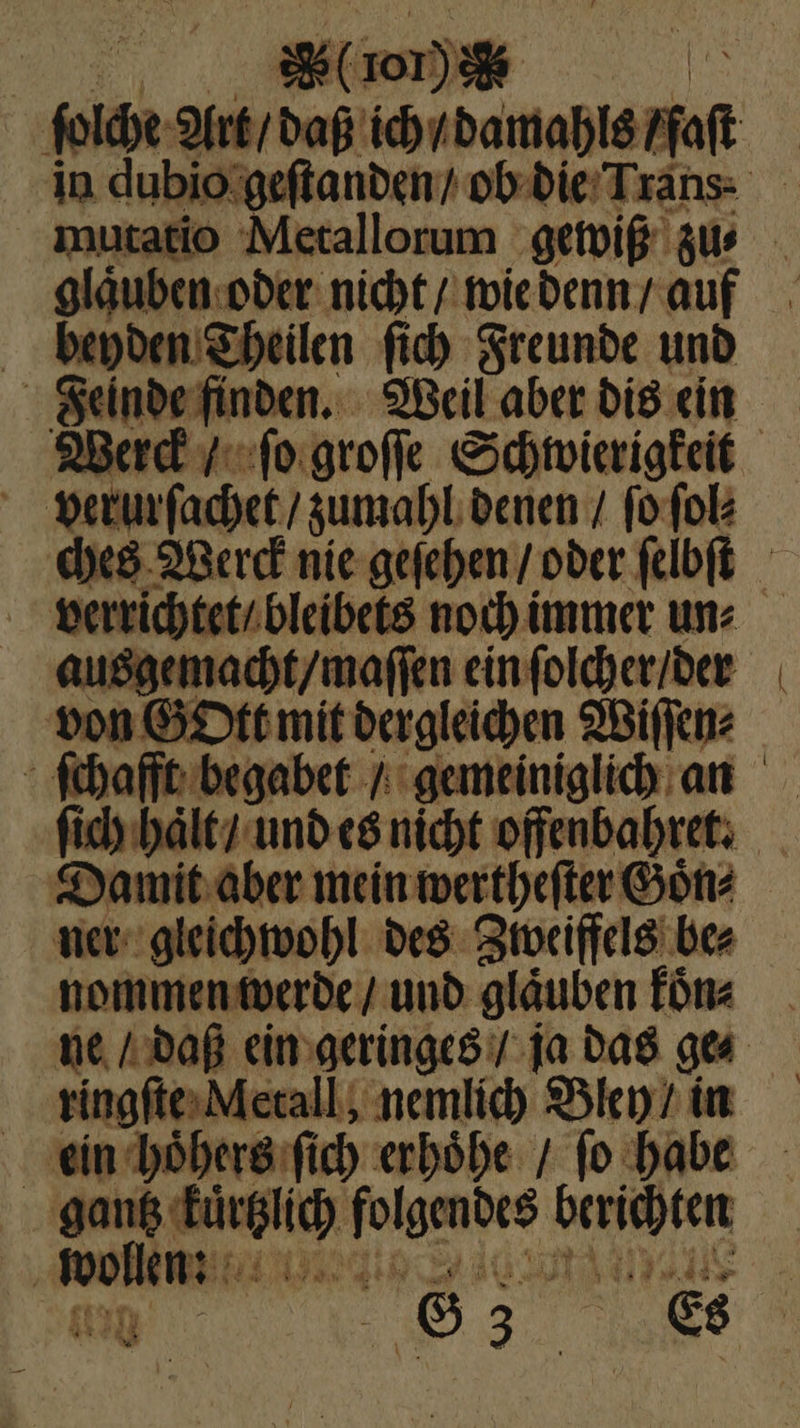 ❧(101)❧
ſolche Art / daß ich / damahls / faſt
in dubio geſtanden / ob die Trans-
mutatio Metallorum gewiß zu⸗
glaͤuben oder nicht / wie denn / auf
beyden Theilen ſich Freunde und
Feinde finden. Weil aber dis ein
Werck / ſo groſſe Schwierigkeit
verurſachet / zumahl denen / ſo ſol⸗
ches Werck nie geſehen / oder ſelbſt
verrichtet / bleibets noch immer un⸗
ausgemacht / maſſen ein ſolcher / der
von GOtt mit dergleichen Wiſſen⸗
ſchafft begabet / gemeiniglich an
ſich haͤlt / und es nicht offenbahret.
Damit aber mein wertheſter Goͤn⸗
ner gleichwohl des Zweiffels be⸗
nommen werde / und glaͤuben koͤn⸗
ne / daß ein geringes / ja das ge⸗
ringſte Metall, nemlich Bley / in
ein hoͤhers ſich erhoͤhe / ſo habe
gantz kuͤrtzlich folgendes berichten
wollen:
G 3 Es